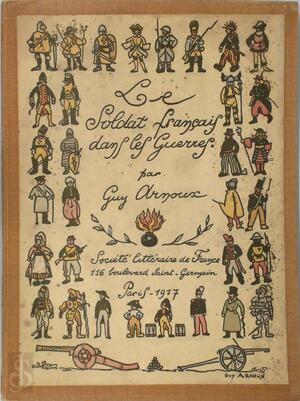 Le
Soldat français
dans les Guerres
par
Guy Arnoux
Société littéraire de France
116 boulevard Saint-Germain
Paris-1917
GUY ARNOUX